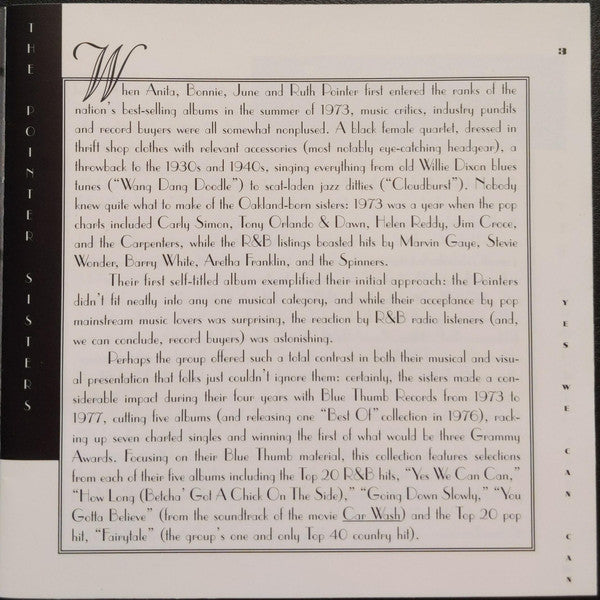 THE POINTER SISTERS
3
When Anita, Bonnie, June and Ruth Pointer first entered the ranks of the
nation's best-selling albums in the summer of 1973, music critics, industry pundits
and record buyers were all somewhat nonplused. A black female quartet, dressed in
thrift shop clothes with relevant accessories (most notably eye-catching headgear), a
throwback to the 1930s and 1940s, singing everything from old Willie Dixon blues
tunes ("Wang Dang Doodle") to scat-laden jazz ditties ("Cloudburst"). Nobody
knew quite what to make of the Oakland-born sisters: 1973 was a year when the pop
charts included Carly Simon, Tony Orlando & Dawn, Helen Reddy, Jim Croce,
and the Carpenters, while the R&B listings boasted hits by Marvin Gaye, Stevie
Wonder, Barry White, Aretha Franklin, and the Spinners.
Their first self-titled album exemplified their initial approach: the Pointers
didn't fit neatly into any one musical category, and while their acceptance by pop
mainstream music lovers was surprising, the reaction by R&B radio listeners (and,
we can conclude, record buyers) was astonishing.
Perhaps the group offered such a total contrast in both their musical and visu-
al presentation that folks just couldn't ignore them: certainly, the sisters made a con-
siderable impact during their four years with Blue Thumb Records from 1973 to
1977, cutting five albums (and releasing one "Best Of" collection in 1976), rack-
ing up seven charted singles and winning the first of what would be three Grammy
Awards. Focusing on their Blue Thumb material, this collection features selections
from each of their five albums including the Top 20 R&B hits, "Yes We Can Can,"
"How Long (Betcha' Got A Chick On The Side)," "Going Down Slowly," "You
Gotta Believe" (from the soundtrack of the movie Car Wash) and the Top 20 pop
hit, "Fairytale" (the group's one and only Top 40 country hit).
YES WE CAN CAN